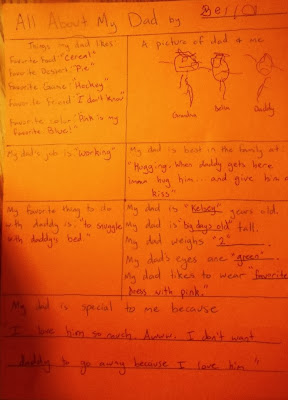 All About My Dad by Bella
Things my dad likes:
Favorite food: "Cereal"
Favorite Dessert: "Pie"
Favorite Game: "Hockey"
Favorite Friend: "I don't know"
Favorite color: "Pink is my
favorite. Blue!"
A picture of dad & me
Grandma Bella Daddy
My dad's job is "working"
My dad is best in the family at:
"Hugging. When daddy gets here
imma hug him... and give him a
kiss"
My favorite thing to do
with daddy is, "to snuggle
with daddy's bed"
My dad is "Kelsey" years old.
My dad is "big days old" tall.
My dad weighs "2".
My dad's eyes are "green".
My dad likes to wear "favorite
dress with pink."
My dad is special to me because
I love him so much. Awww, I don't want
daddy to go away because I love him"